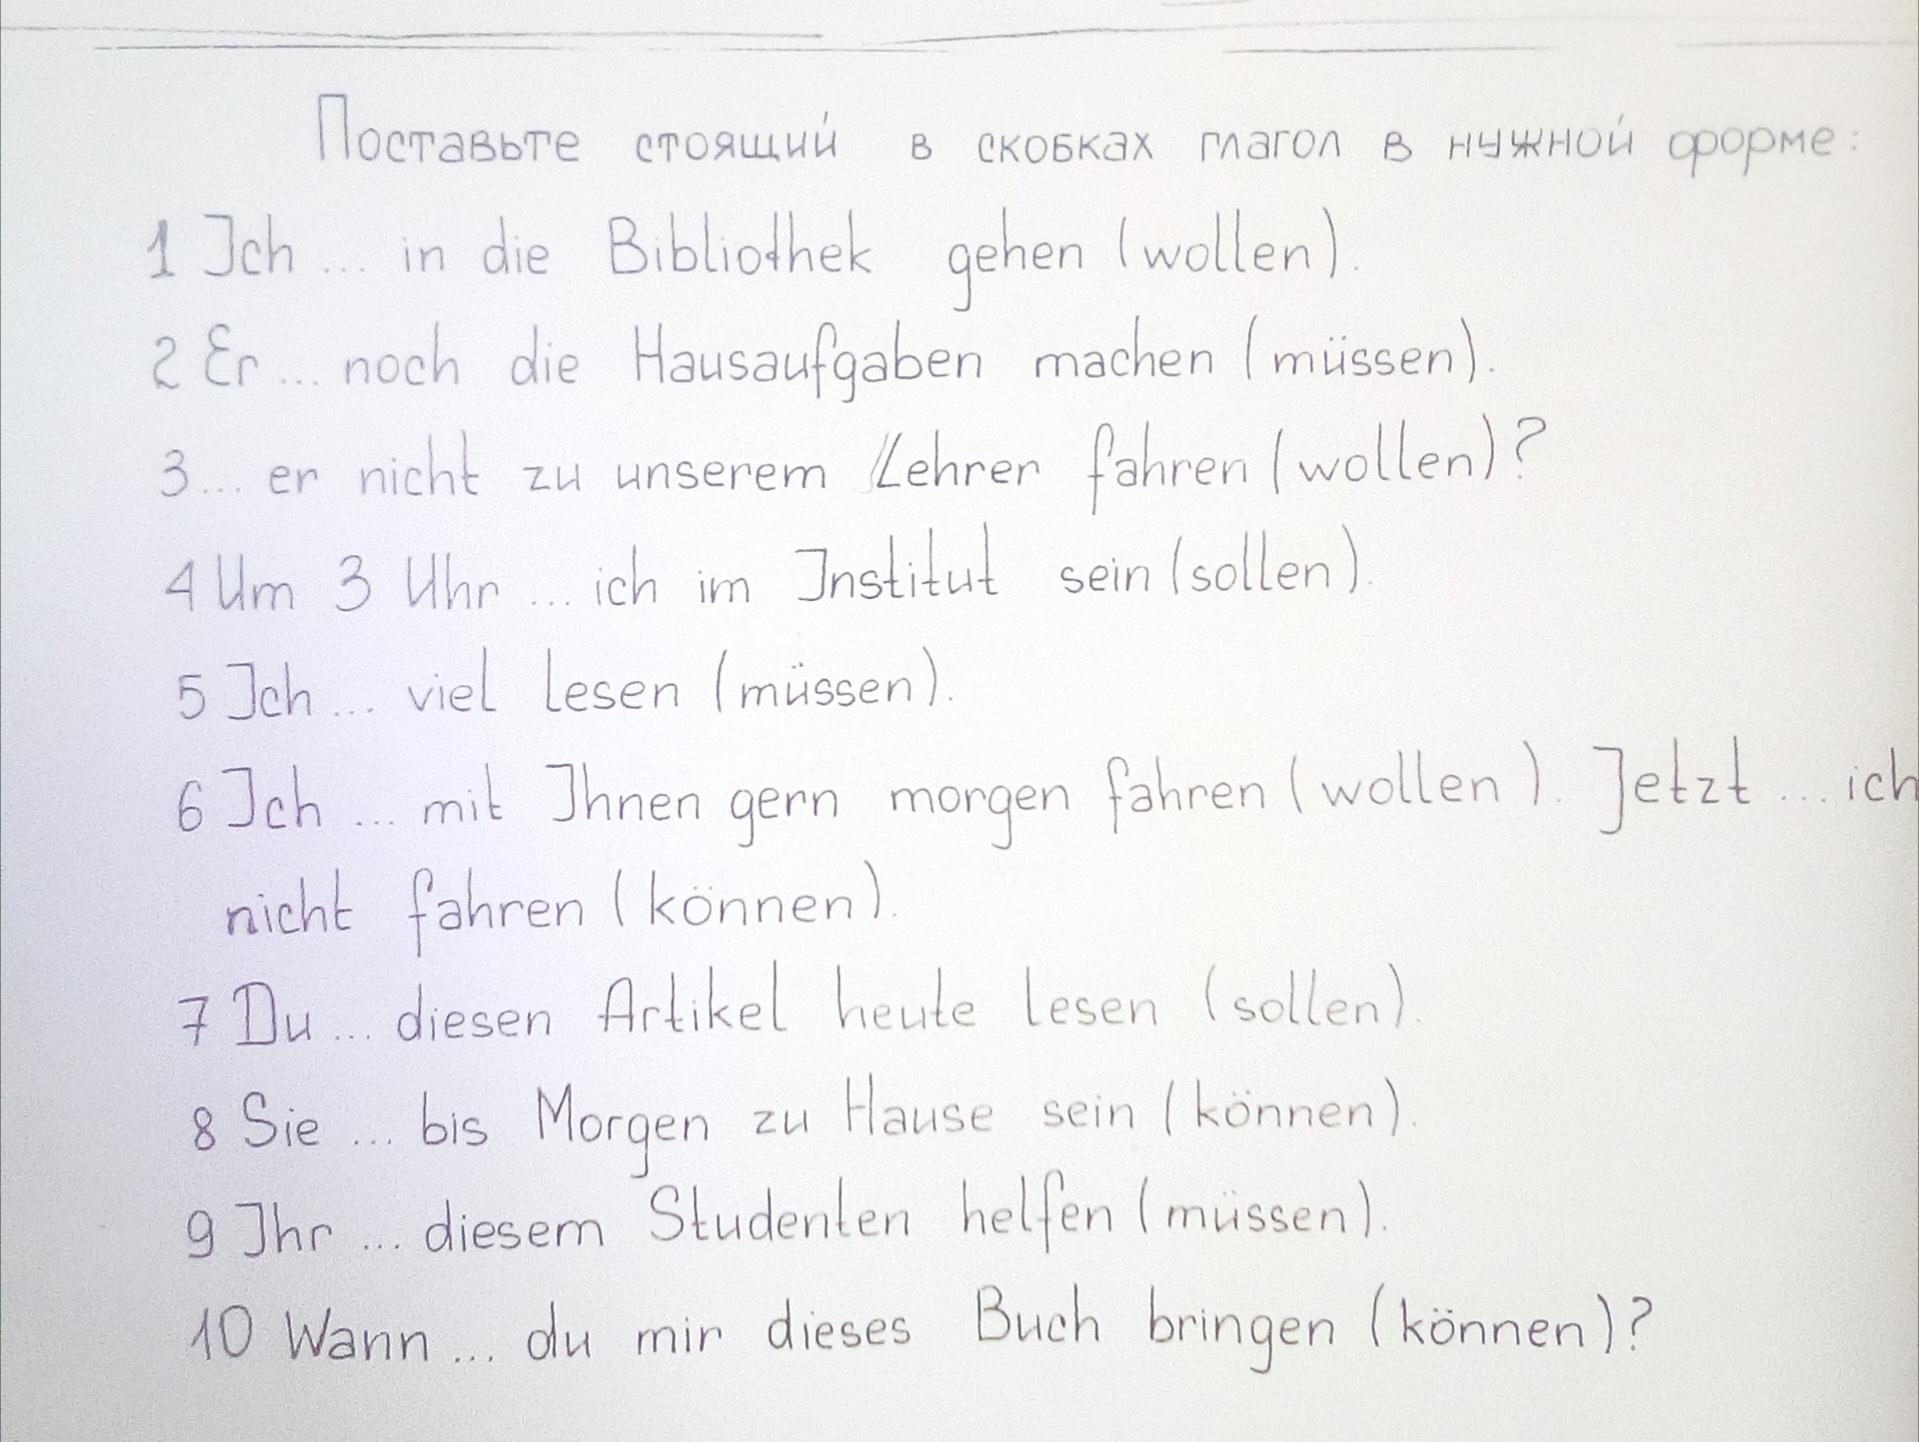 Поставьте стоящий в скобках глагол в нужной форме:
1 Ich ... in die Bibliothek gehen (wollen).
2 Er ... noch die Hausaufgaben machen (müssen).
3 ... er nicht zu unserem Lehrer fahren (wollen)?
4 Um 3 Uhr ... ich im Institut sein (sollen).
5 Ich ... viel lesen (müssen).
6 Ich ... mit Ihnen gern morgen fahren (wollen). Jetzt ... ich
nicht fahren (können).
7 Du ... diesen Artikel heute lesen (sollen).
8 Sie ... bis Morgen zu Hause sein (können).
9 Ihr ... diesem Studenten helfen (müssen).
10 Wann ... du mir dieses Buch bringen (können)?